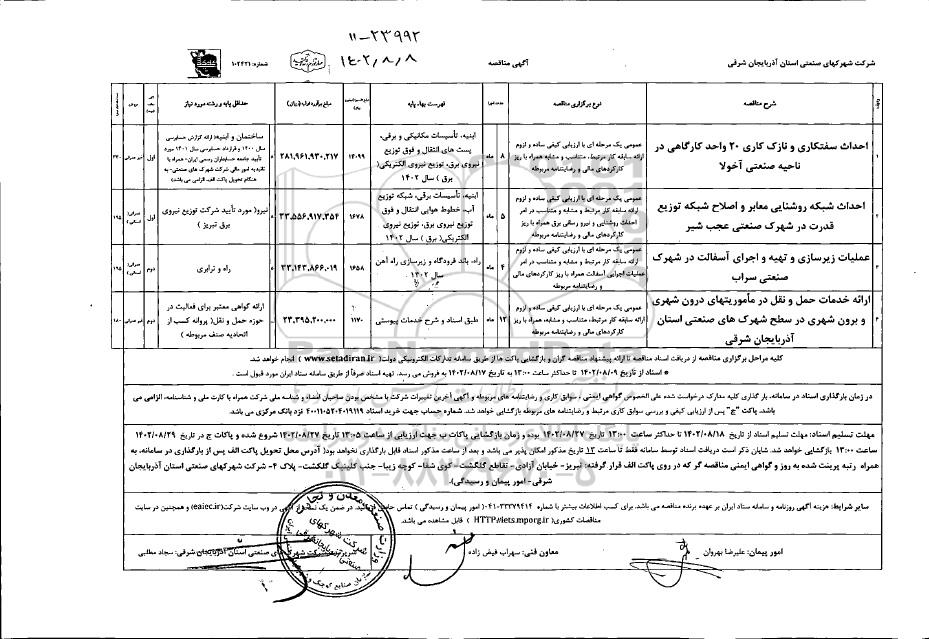 ۱۱-۲۳۹۹۲
۱۴۰۲/۸/۸
شرکت شهرکهای صنعتی استان آذربایجان شرقی
آگهی مناقصه
شماره: ۱۰۲۴۲۱
شرح مناقصه
نوع برگزاری مناقصه
فهرست بهاء پایه
حداقل پایه و رشته مورد نیاز
۱
احداث سفتکاری و نازک کاری ۲۰ واحد کارگاهی در
ناحیه صنعتی آخولا
عمومی یک مرحله ای با ارزیابی کیفی ساده و لزوم
ارائه سابقه کار مرتبط، متناسب و مشابه همراه با ریز
کارکردهای مالی و رضایتنامه مربوطه
۸ ماه
ابنیه، تأسیسات مکانیکی و برقی،
پست های انتقال و فوق توزیع
نیروی برق، توزیع نیروی الکتریکی(
برق ) سال ۱۴۰۲
۱۴۰۹۹
۲۸۱,۹۶۱,۹۳۰,۲۱۷
ساختمان و ابنیه( ارائه گزارش حسابرسی
سال ۱۴۰۰ و قرارداد حسابرسی سال ۱۴۰۱ مورد
تأیید جامعه حسابداران رسمی ایران- همراه با
تائیدیه امور مالی شرکت شهرک های صنعتی- به
هنگام تحویل پاکت الف، الزامی می باشد)
اول
غیر عمرانی
۲
احداث شبکه روشنایی معابر و اصلاح شبکه توزیع
قدرت در شهرک صنعتی عجب شیر
عمومی یک مرحله ای با ارزیابی کیفی ساده و لزوم
ارائه سابقه کار مرتبط و مشابه و متناسب در امر
احداث روشنایی و نیرو رسانی برق همراه با ریز
کارکردهای مالی و رضایتنامه مربوطه
۵ ماه
ابنیه، تأسیسات برقی، شبکه توزیع
آب، خطوط هوایی انتقال و فوق
توزیع نیروی برق، توزیع نیروی
الکتریکی( برق ) سال ۱۴۰۲
۱۶۷۸
۳۳,۵۵۶,۹۱۷,۳۵۴
نیرو( مورد تأیید شرکت توزیع نیروی
برق تبریز )
اول
۱۹۵
۳
عملیات زیرسازی و تهیه و اجرای آسفالت در شهرک
صنعتی سراب
عمومی یک مرحله ای با ارزیابی کیفی ساده و لزوم
ارائه سابقه کار مرتبط و مشابه و متناسب در امر
عملیات اجرایی آسفالت همراه با ریز کارکردهای مالی
و رضایتنامه مربوطه
۴ ماه
راه، باند فرودگاه و زیرسازی راه آهن
سال ۱۴۰۲
۱۶۵۸
۳۳,۱۴۳,۸۶۶,۰۱۹
راه و ترابری
دوم
۱۹۵
۴
ارائه خدمات حمل و نقل در مأموریتهای درون شهری
و برون شهری در سطح شهرک های صنعتی استان
آذربایجان شرقی
عمومی یک مرحله ای با ارزیابی کیفی ساده و لزوم
ارائه سابقه کار مرتبط، متناسب و مشابه، همراه با ریز
کارکردهای مالی و رضایتنامه مربوطه
۱۲ ماه
طبق اسناد و شرح خدمات پیوستی
۱۱۷۰
۲۳,۳۹۵,۲۰۰,۰۰۰
ارائه گواهی معتبر برای فعالیت در
حوزه حمل و نقل( پروانه کسب از
اتحادیه صنف مربوطه )
دوم
غیر عمرانی
۱۸۰
کلیه مراحل برگزاری مناقصه از دریافت اسناد مناقصه تا ارائه پیشنهاد مناقصه گران و بازگشایی پاکت ها از طریق سامانه تدارکات الکترونیکی دولت( www.setadiran.ir ) انجام خواهد شد.
* اسناد از تاریخ ۱۴۰۲/۰۸/۰۹ تا حداکثر ساعت ۱۳:۰۰ به تاریخ ۱۴۰۲/۰۸/۱۷ به فروش می رسد. تهیه اسناد صرفاً از طریق سامانه ستاد ایران مورد قبول است.
در زمان بارگذاری اسناد در سامانه، بار گذاری کلیه مدارک درخواست شده علی الخصوص گواهی ایمنی، سوابق کاری و رضایتنامه های مربوطه و آگهی آخرین تغییرات شرکت با مشخص بودن صاحبان امضاء و شناسه ملی شرکت همراه با کارت ملی و شناسنامه، الزامی می
باشد. پاکت "ج" پس از ارزیابی کیفی و بررسی سوابق کاری مرتبط و رضایتنامه های مربوطه بازگشایی خواهد شد. شماره حساب جهت خرید اسناد ۴۰۰۱۱۰۵۲۰۴۰۱۹۱۱۹ نزد بانک مرکزی می باشد.
مهلت تسلیم اسناد: مهلت تسلیم اسناد از تاریخ ۱۴۰۲/۰۸/۱۸ تا حداکثر ساعت ۱۳:۰۰ تاریخ ۱۴۰۲/۰۸/۲۷ بوده و زمان بازگشایی پاکات ب جهت ارزیابی از ساعت ۱۳:۰۵ تاریخ ۱۴۰۲/۰۸/۲۷ شروع شده و پاکات ج در تاریخ ۱۴۰۲/۰۸/۲۹
ساعت ۱۳:۰۰ بازگشایی خواهد شد. شایان ذکر است دریافت اسناد توسط سامانه فقط تا ساعت ۱۳ تاریخ مذکور امکان پذیر می باشد و بعد از ساعت مذکور اسناد قابل بارگذاری نخواهد بود( آدرس محل تحویل پاکت الف پس از بارگذاری در سامانه، به
همراه رتبه پرینت شده به روز و گواهی ایمنی مناقصه گر که در روی پاکت الف قرار گرفته: تبریز- خیابان آزادی- تقاطع گلگشت- کوی شفا- کوچه زیبا- جنب کلینیک گلگشت- پلاک ۴- شرکت شهرکهای صنعتی استان آذربایجان
شرقی- امور پیمان و رسیدگی).
سایر شرایط: هزینه آگهی روزنامه و سامانه ستاد ایران بر عهده برنده مناقصه می باشد. برای کسب اطلاعات بیشتر با شماره ۰۴۱-۳۳۳۷۹۴۱۴ ( امور پیمان و رسیدگی ) تماس حاصل نمایید. در ضمن یک نسخه از آگهی در وب سایت شرکت(eaiec.ir) و همچنین در سایت
مناقصات کشوری( HTTP://iets.mporg.ir ) قابل مشاهده می باشد.
امور پیمان: علیرضا بهروان
معاون فنی: سهراب فیض زاده
شرکت شهرکهای صنعتی استان آذربایجان شرقی: سجاد مطلبی